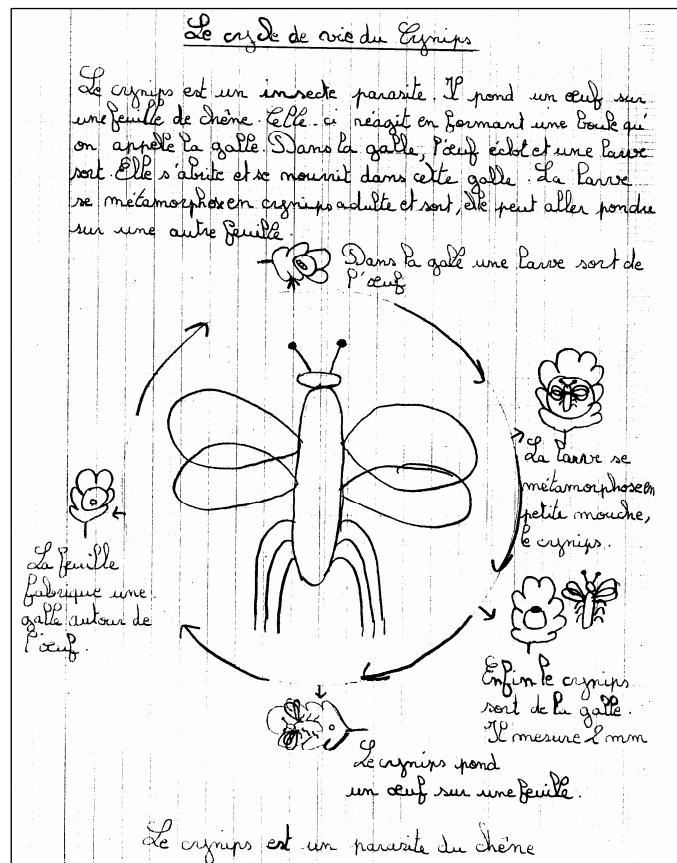 Le cycle de vie du Cynips
Le cynips est un insecte parasite. Il pond un œuf sur
une feuille de chêne. Celle-ci réagit en formant une boule qu'
on appelle la galle. Dans la galle, l'œuf éclot et une larve
sort. Elle s'abrite et se nourrit dans cette galle. La larve
se métamorphose en cynips adulte et sort, elle peut aller pondre
sur une autre feuille.
Dans la galle une larve sort de
l'œuf
La larve se
métamorphose en
petite mouche,
le cynips.
Enfin le cynips
sort de la galle.
Il mesure 2 mm
Le cynips pond
un œuf sur une feuille.
La feuille
fabrique une
galle autour de
l'œuf.
Le cynips est un parasite du chêne